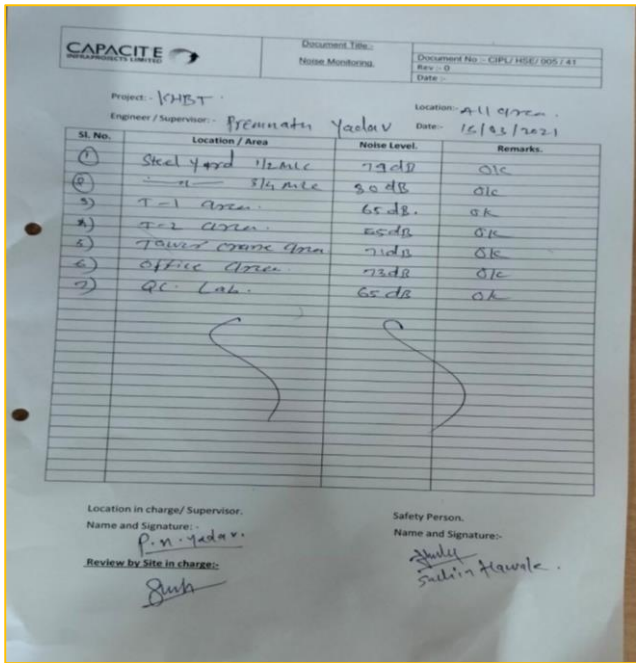 CAPACITE
INFRAPROJECTS LIMITED
Document Title:-
Noise Monitoring.
Document No :- CIPL/ HSE/ 005 / 41
Rev :- 0
Date :-
Project:- KHBT
Location:- All area.
Engineer / Supervisor:- Premnath Yadav Date:- 16/03/2021
Sl. No. Location / Area Noise Level. Remarks.
1 Steel yard 1/2 M/c 79 dB OK
2 —"— 3/4 M/c 80 dB OK
3) T-1 area. 65 dB. OK
4) T-2 area. 65 dB OK
5) Tower crane area 71 dB OK
6) Office area. 73 dB OK
7) QC. Lab. 65 dB OK
Location in charge/ Supervisor.
Name and Signature: -
P.N. Yadav.
Review by Site in charge:-
Safety Person.
Name and Signature:-
Sachin Hawale.